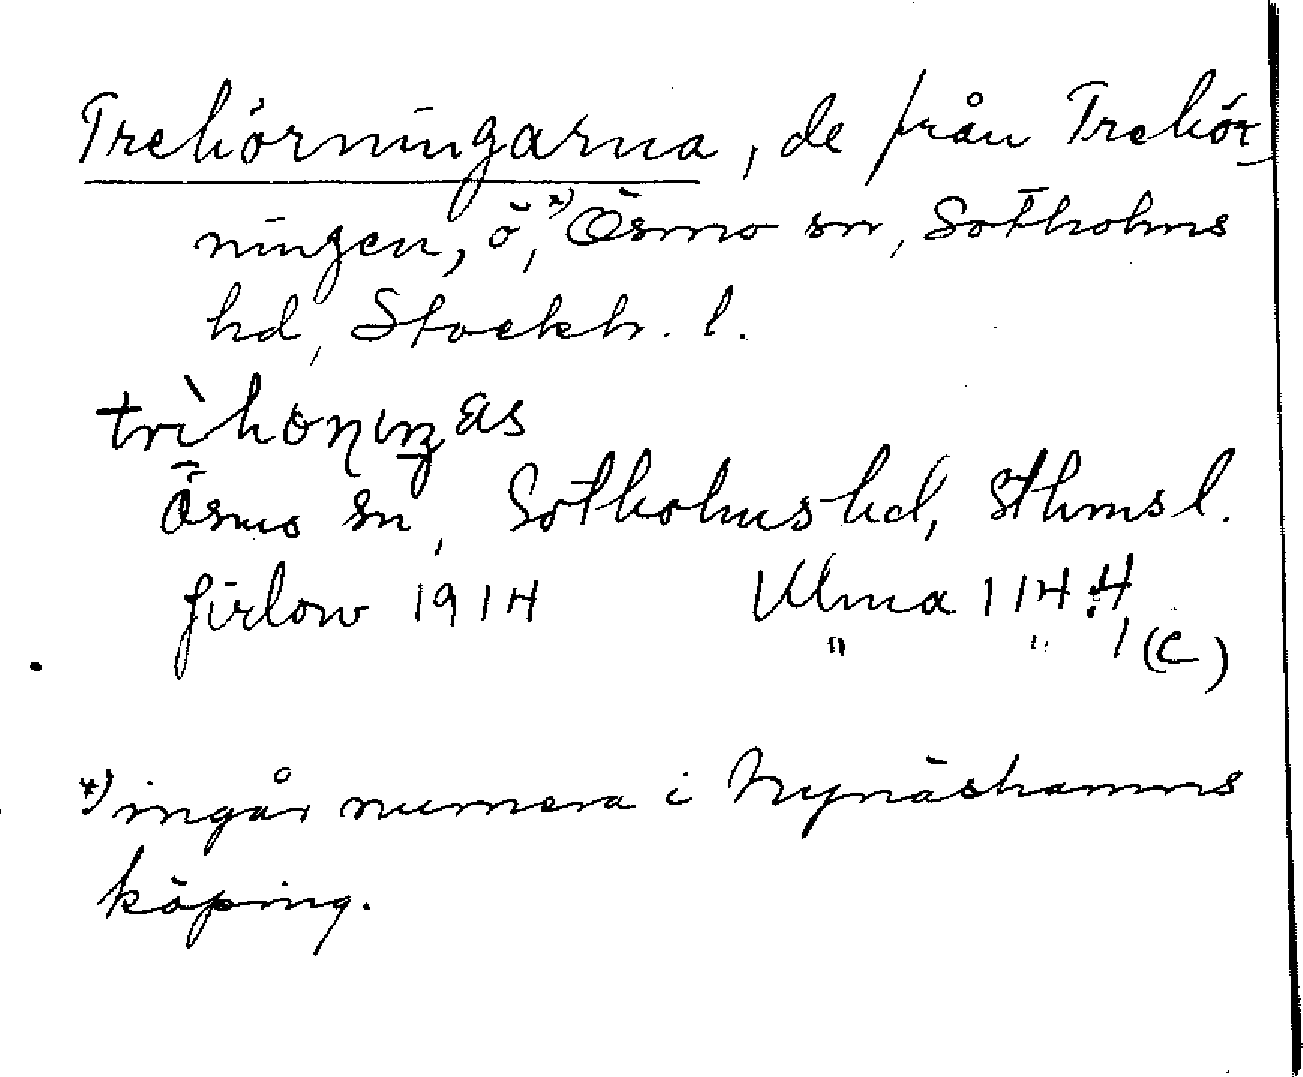 Trehörningarna, de från Trehör-
ningen, ö,*) Ösmo sn, Sotholms
hd, Stockh. l.
Ösmo sn, Sotholms hd, Sthms l.
Girlow 1914 Ulma 114:4
" " , (c)
*) ingår numera i Nynäshamns
köping.